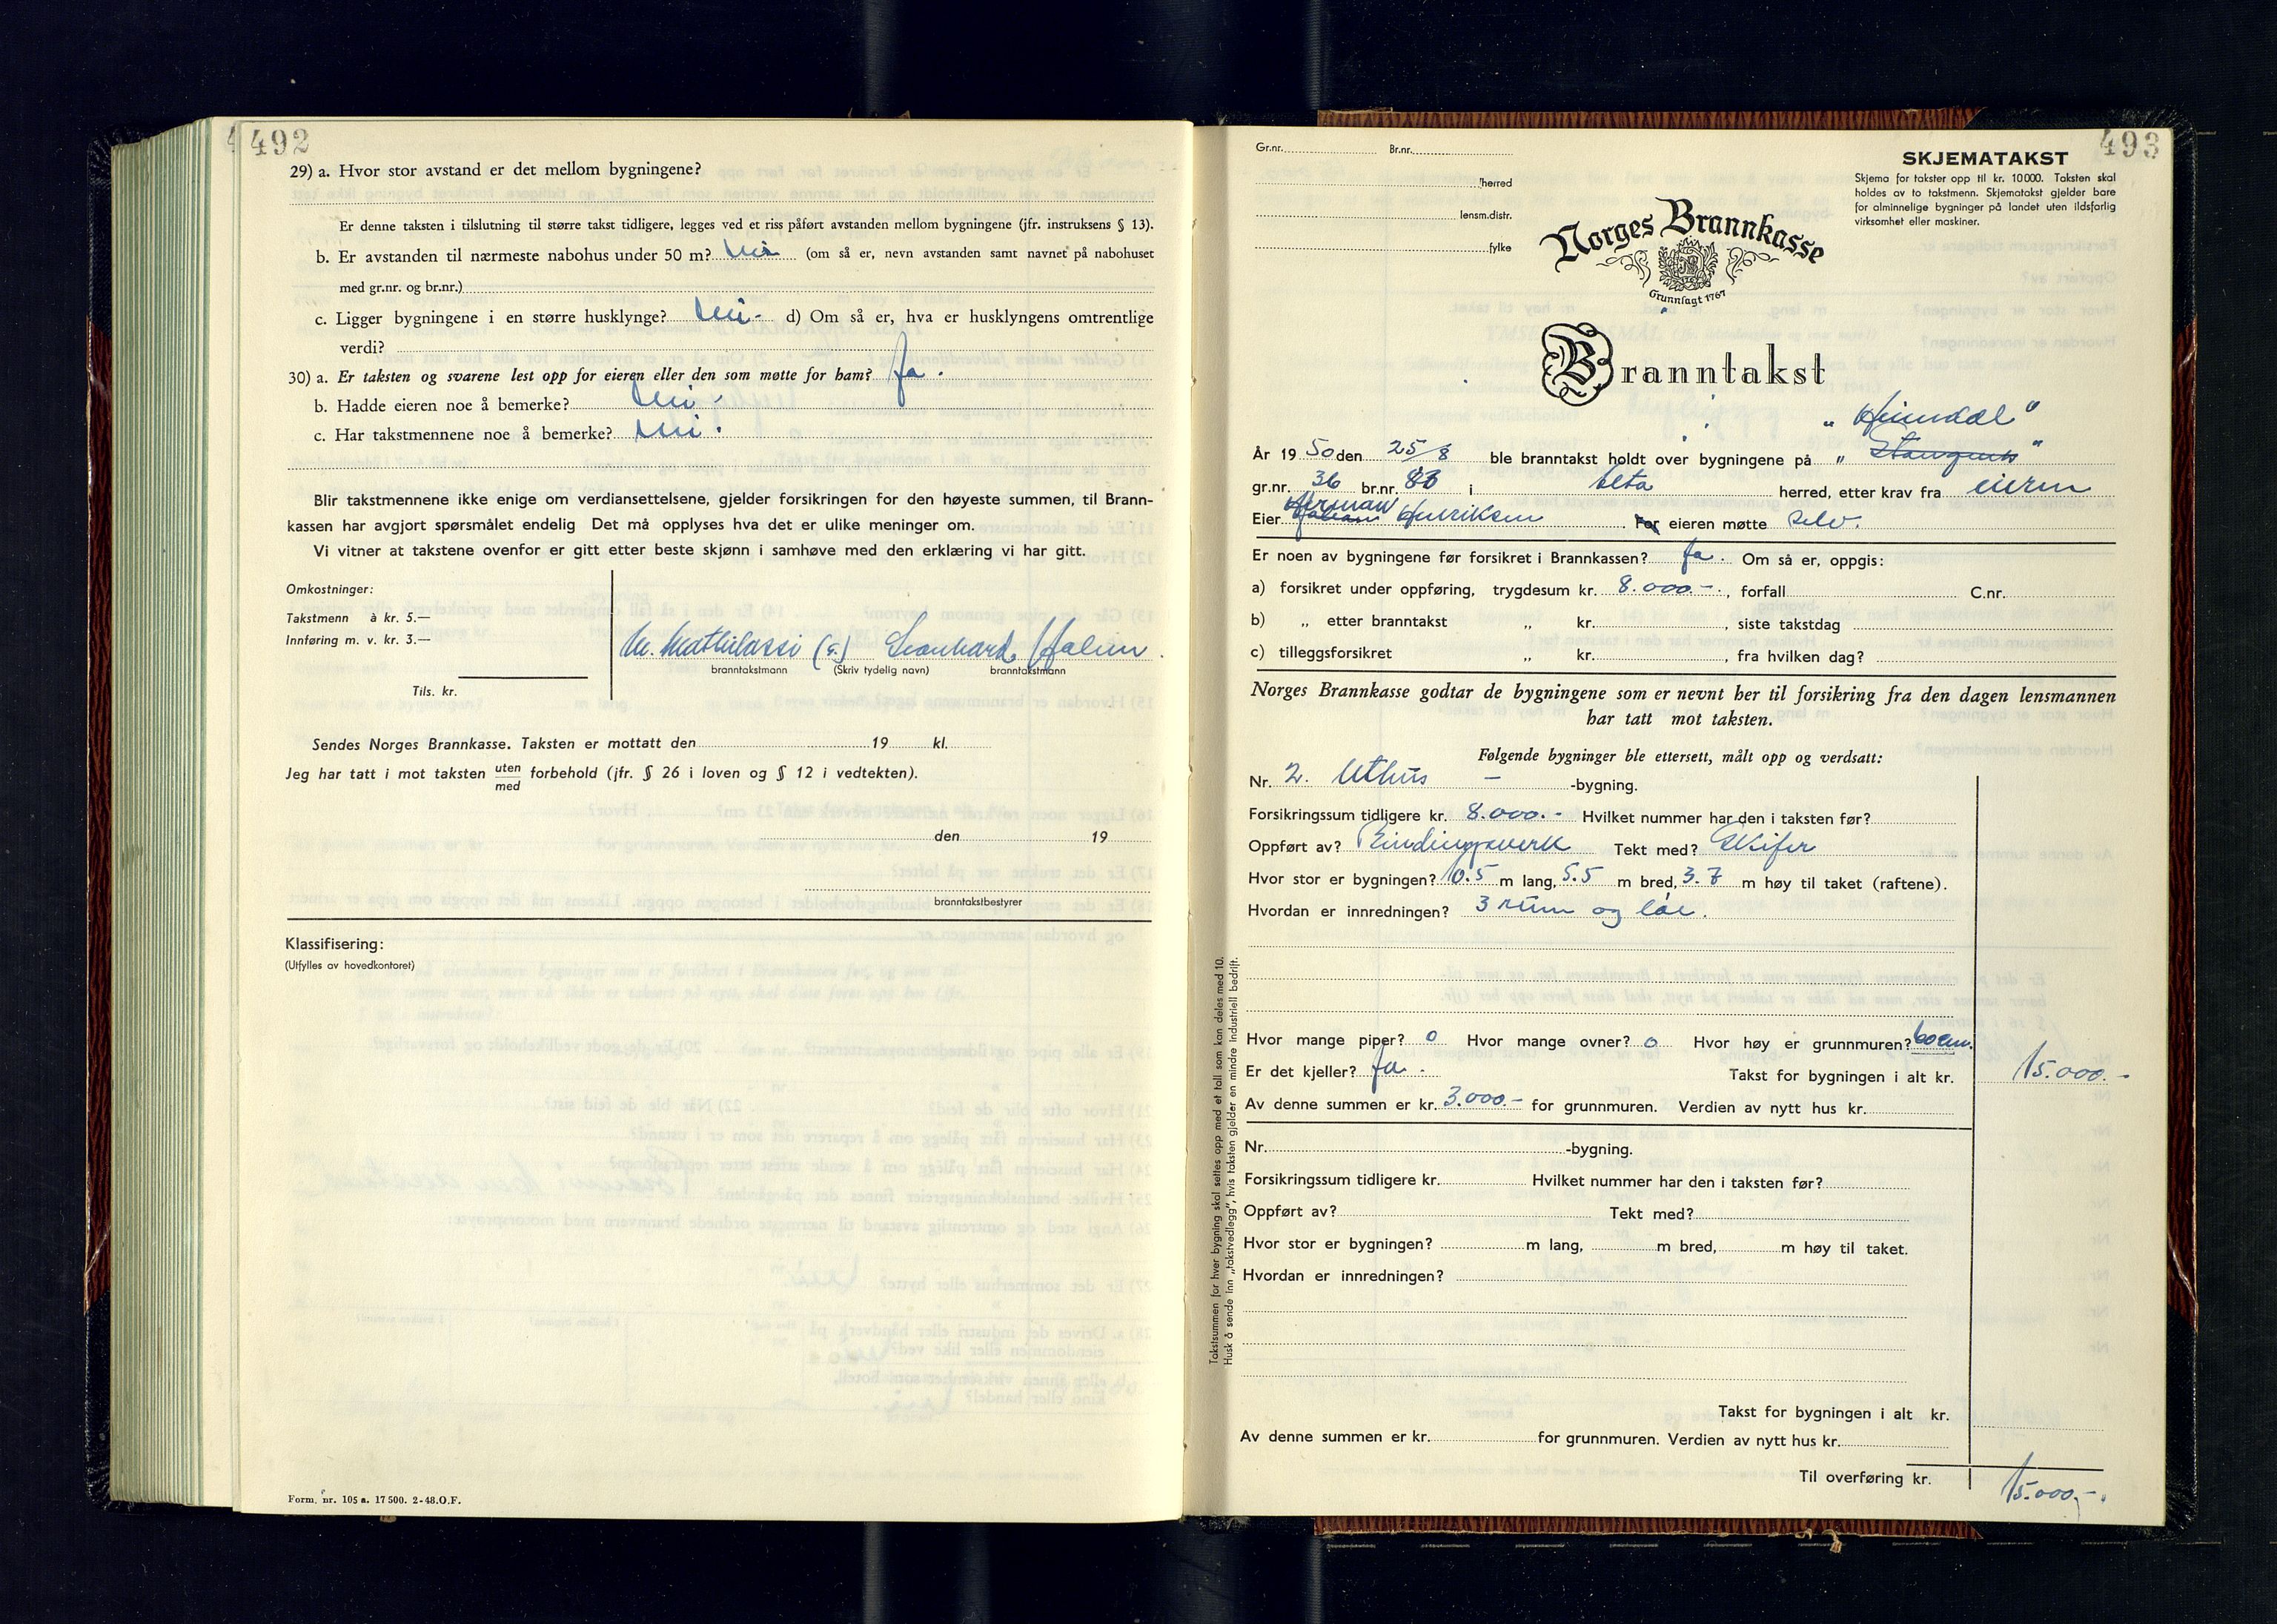 492
29) a. Hvor stor avstand er det mellom bygningene?
Er denne taksten i tilslutning til større takst tidligere, legges ved et riss påført avstanden mellom bygningene (jfr. instruksens § 13).
b. Er avstanden til nærmeste nabohus under 50 m? Nei (om så er, nevn avstanden samt navnet på nabohuset
med gr.nr. og br.nr.)
c. Ligger bygningene i en større husklynge? Nei - d) Om så er, hva er husklyngens omtrentlige
verdi?
30) a. Er taksten og svarene lest opp for eieren eller den som møtte for ham? Ja.
b. Hadde eieren noe å bemerke? Nei.
c. Har takstmennene noe å bemerke? Nei.
Blir takstmennene ikke enige om verdiansettelsene, gjelder forsikringen for den høyeste summen, til Brann-
kassen har avgjort spørsmålet endelig Det må opplyses hva det er ulike meninger om.
Vi vitner at takstene ovenfor er gitt etter beste skjønn i samhøve med den erklæring vi har gitt.
Omkostninger:
Takstmenn à kr. 5.—
Innføring m. v. kr. 3.—
Tils. kr.
M. Mathilassi (s.) Leonhard Halum.
branntakstmann (Skriv tydelig navn) branntakstmann
Sendes Norges Brannkasse. Taksten er mottatt den 19 kl.
Jeg har tatt i mot taksten uten
med forbehold (jfr. § 26 i loven og § 12 i vedtekten).
den 19
branntakstbestyrer
Klassifisering:
(Utfylles av hovedkontoret)
Form. nr. 105 a. 17 500. 2-48. O.F.
493
Gr.nr. Br.nr.
herred
lensm.distr.
fylke
SKJEMATAKST
Skjema for takster opp til kr. 10 000. Taksten skal
holdes av to takstmenn. Skjematakst gjelder bare
for alminnelige bygninger på landet uten ildsfarlig
virksomhet eller maskiner.
Norges Brannkasse
Grunnlagt 1767
Branntakst
„ Heimdal "
År 1950 den 25/8 ble branntakst holdt over bygningene på „ "
gr.nr. 36 br.nr. 83 i Alta herred, etter krav fra eieren
Eier Herman Henriksen For eieren møtte selv.
Er noen av bygningene før forsikret i Brannkassen? Ja. Om så er, oppgis:
a) forsikret under oppføring, trygdesum kr. 8.000.-, forfall C.nr.
b) „ etter branntakst „ kr. , siste takstdag
c) tilleggsforsikret „ kr. , fra hvilken dag?
Norges Brannkasse godtar de bygningene som er nevnt her til forsikring fra den dagen lensmannen
har tatt mot taksten.
Følgende bygninger ble ettersett, målt opp og verdsatt:
Nr. 2. Uthus - -bygning.
Forsikringssum tidligere kr. 8.000.- Hvilket nummer har den i taksten før?
Oppført av? Bindingsverk Tekt med? Skifer
Hvor stor er bygningen? 10.5 m lang, 5.5 m bred, 3.7 m høy til taket (raftene).
Hvordan er innredningen? 3 rum og låe.
Hvor mange piper? 0 Hvor mange ovner? 0 Hvor høy er grunnmuren? 60 cm.
Er det kjeller? Ja. Takst for bygningen i alt kr. 15.000.-
Av denne summen er kr. 3.000.- for grunnmuren. Verdien av nytt hus kr.
Nr. -bygning.
Forsikringssum tidligere kr. Hvilket nummer har den i taksten før?
Oppført av? Tekt med?
Hvor stor er bygningen? m lang, m bred, m høy til taket.
Hvordan er innredningen?
Takst for bygningen i alt kr.
Av denne summen er kr. for grunnmuren. Verdien av nytt hus kr.
Til overføring kr. 15.000.-
Takstsummen for hver bygning skal settes opp med et tall som kan deles med 10.
Husk å sende inn „takstvedlegg", hvis taksten gjelder en mindre industriell bedrift.